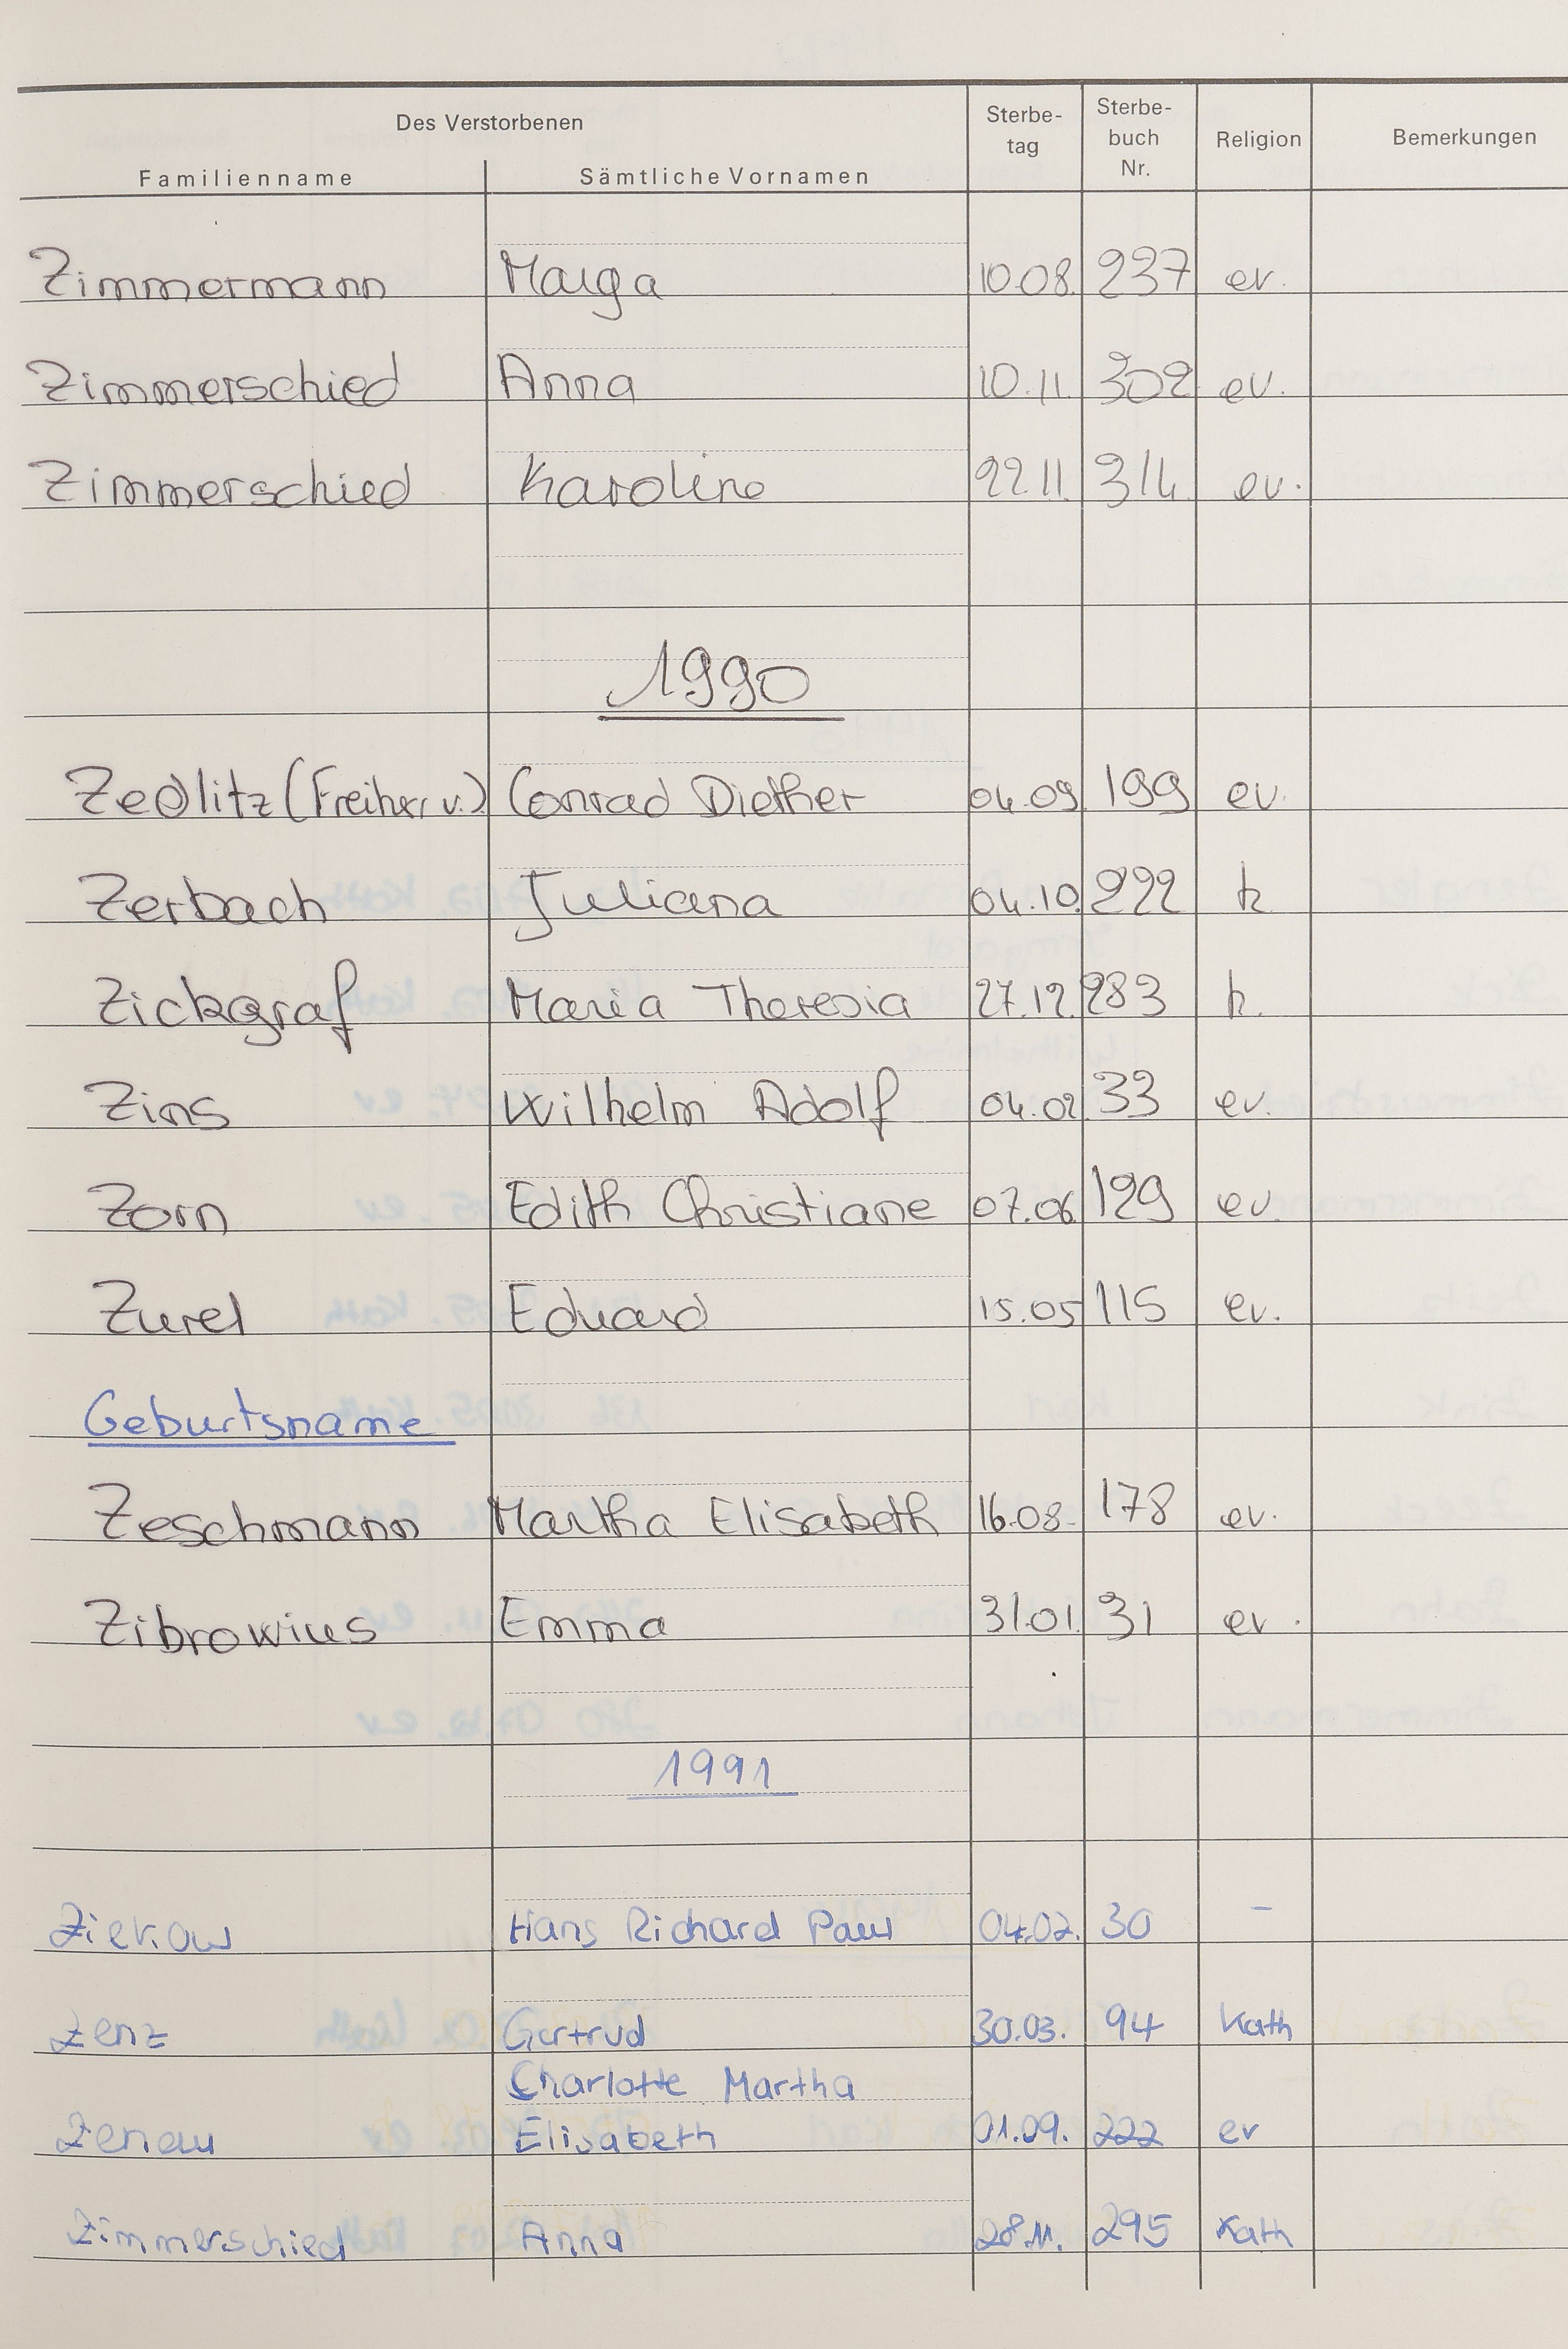 Des Verstorbenen
Familienname Sämtliche Vornamen Sterbe-tag Sterbe-buch Nr. Religion Bemerkungen
Zimmermann Marga 10.08. 237 ev.
Zimmerschied Anna 10.11. 302 ev.
Zimmerschied Karoline 22.11. 314 ev.
1990
Zedlitz (Freiherr v.) Conrad Diether 04.09. 199 ev.
Zerbach Juliana 04.10. 222 k
Zickgraf Maria Theresia 27.12. 283 k.
Zins Wilhelm Adolf 04.02. 33 ev.
Zorn Edith Christiane 07.06. 129 ev.
Zurel Eduard 15.05 115 ev.
Geburtsname
Zeschmann Martha Elisabeth 16.08. 178 ev.
Zibrowius Emma 31.01. 31 ev.
1991
Ziekow Hans Richard Paul 04.02. 30 –
Zenz Gertrud 30.03. 94 Kath
Charlotte Martha
Zenau Elisabeth 01.09. 222 ev
Zimmerschied Anna 28.11. 295 Kath